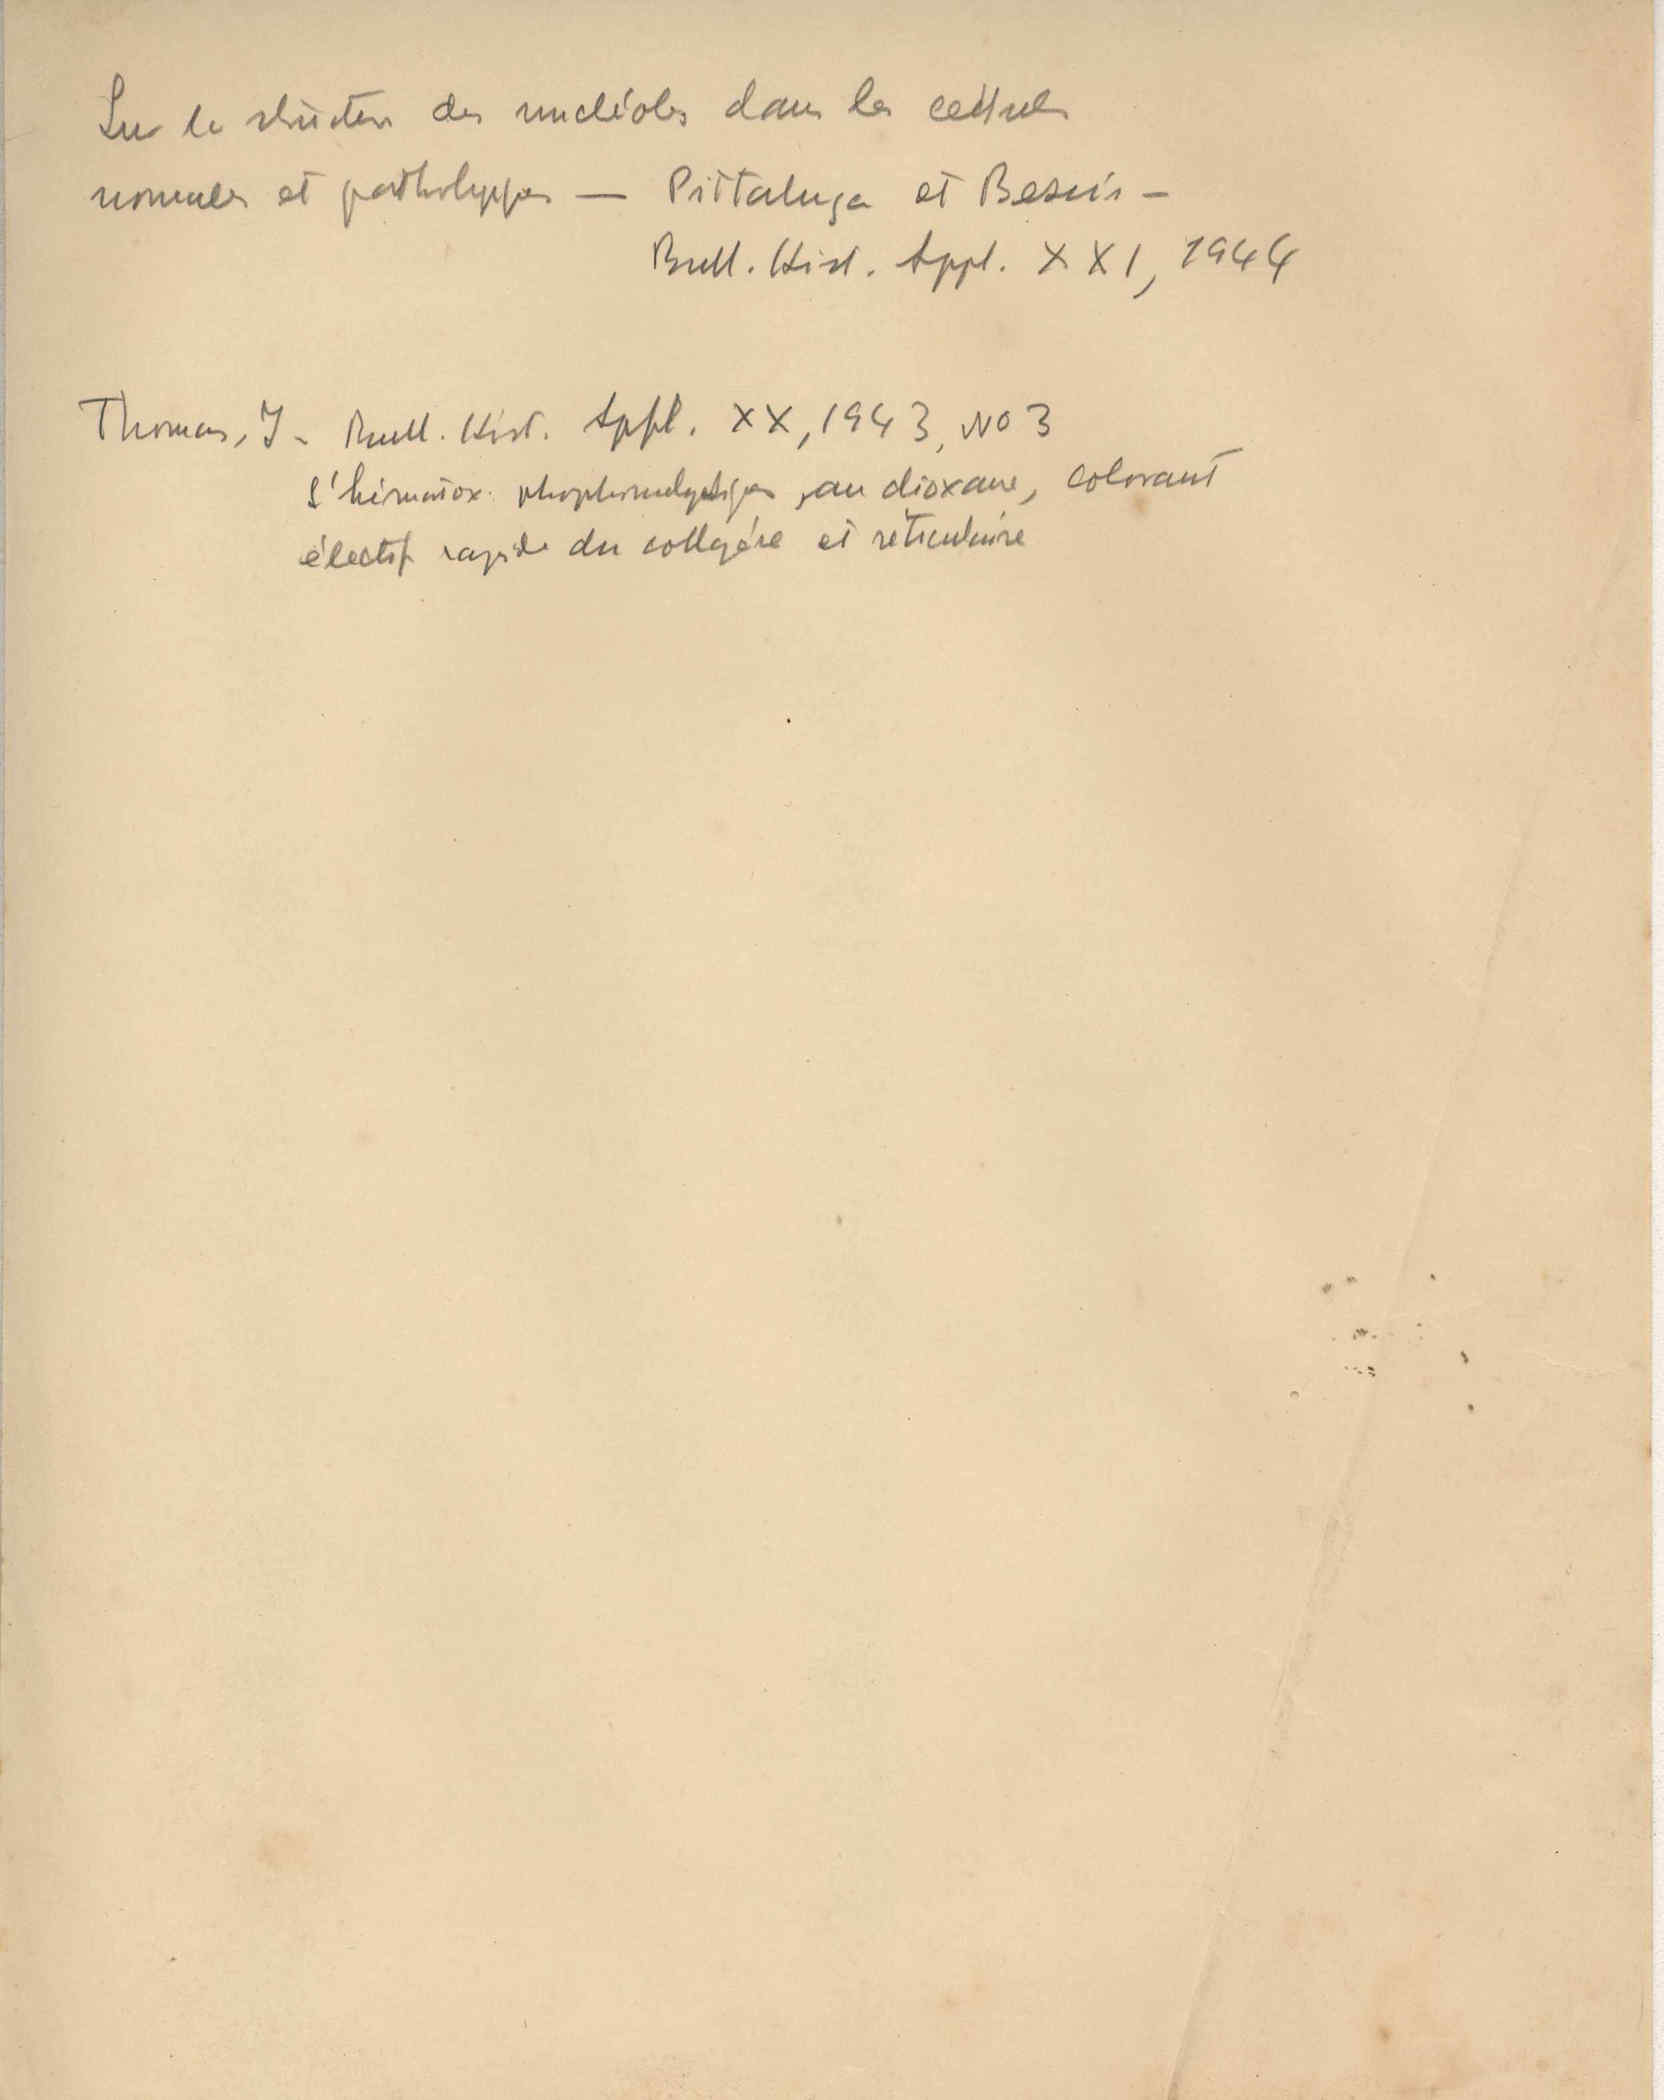 Sur la structure des nucléoles dans les cellules
normales et pathologiques — Pittaluga et Bessis —
Bull. Hist. Appl. XXI, 1944
Thomas, J - Bull. Hist. Appl. XX, 1943, NO 3
l'hématox. phosphomolybdique au dioxane, colorant
électif rapide du collagène et réticuline